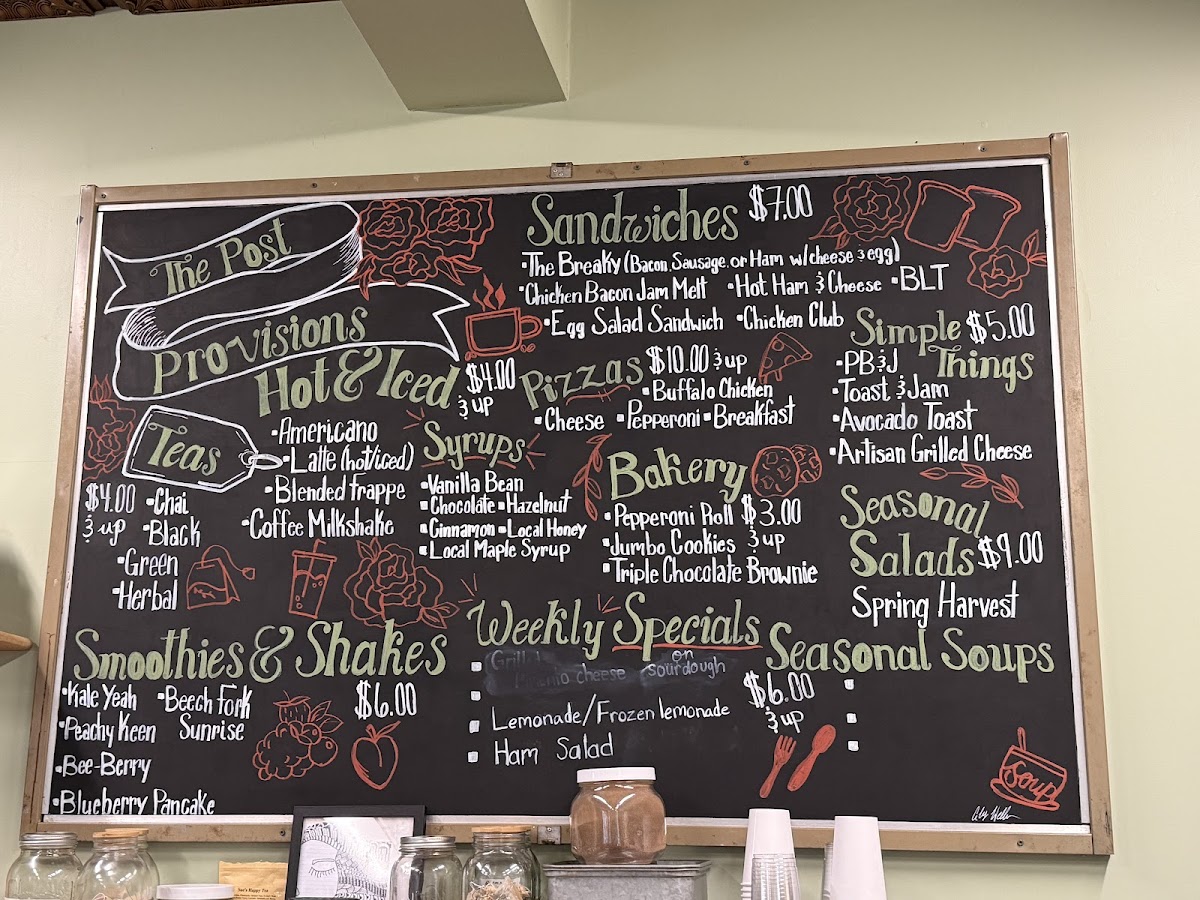 The Post
Provisions
Hot & Iced $4.00 & up
•Americano
•Latte (hot/iced)
•Blended frappe
•Coffee Milkshake
Teas
$4.00 & up
•Chai
•Black
•Green
•Herbal
Syrups
•Vanilla Bean
•Chocolate •Hazelnut
•Cinnamon •Local Honey
•Local Maple Syrup
Smoothies & Shakes
$6.00
•Kale Yeah •Beech Fork Sunrise
•Peachy Keen
•Bee-Berry
•Blueberry Pancake
Sandwiches $7.00
•The Breaky (Bacon, Sausage, or Ham w/cheese & egg)
•Chicken Bacon Jam Melt •Hot Ham & Cheese •BLT
•Egg Salad Sandwich •Chicken Club
Pizzas $10.00 & up
•Buffalo Chicken
•Cheese •Pepperoni •Breakfast
Simple Things $5.00
•PB&J
•Toast & Jam
•Avocado Toast
•Artisan Grilled Cheese
Bakery
•Pepperoni Roll $3.00
•Jumbo Cookies & up
•Triple Chocolate Brownie
Seasonal
Salads $9.00
Spring Harvest
Weekly Specials
cheese on sourdough
Lemonade/Frozen lemonade
Ham Salad
$6.00
& up
Seasonal Soups
Soup